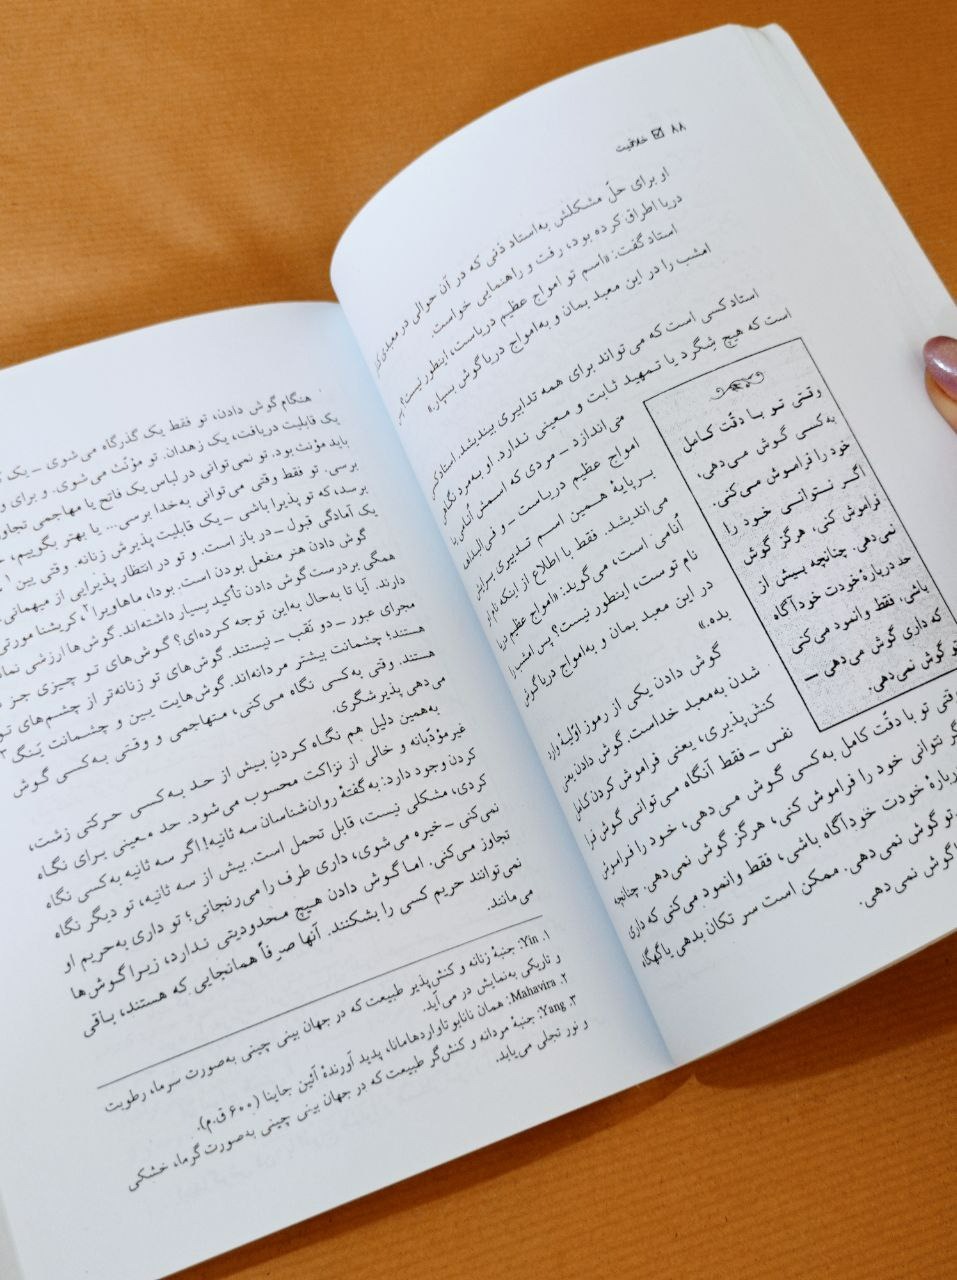 ۸۸ خلاقیت
او برای حلّ مشکلش به‌استاد ذنی که در آن حوالی در معبدی کنار
دریا اطراق کرده بود، رفت و راهنمایی خواست.
استاد گفت: «اسم تو امواج عظیم دریاست، اینطور نیست؟ پس
امشب را در این معبد بمان و به‌امواج دریا گوش بسپار.»
استاد کسی است که می‌تواند برای همه تدابیری بیندیشد. استاد کسی
است که هیچ شِگرد یا تمهید ثابت و معینی ندارد. او به‌مرد نگاه
می‌اندازد ــ مردی که اسمش اُنامی یا
امواج عظیم دریاست ــ و فی‌البداهه
بـرپایهٔ هـمین اسـم تـدبیری بـرایش
می‌اندیشد. فقط با اطلاع از اینکه نام تو
اُنامی است، می‌گوید: «امواج عظیم دریا
نام توست، اینطور نیست؟ پس امشب را
در این معبد بمان و به‌امواج دریا گوش
بده.»
گوش دادن یکی از رموز اوّلیهٔ وارد
شدن به‌معبد خداست. گوش دادن یعنی
کنش‌پذیری، یعنی فراموش کردن کامل
نفس ــ فقط آنگاه می‌توانی گوش فرا
وقتی تو با دقّت کامل
به‌کسی گـوش مـی‌دهی،
خود را فراموش می‌کنی.
اگـر نـتوانـی خـود را
فراموش کنی، هرگز گوش
نمی‌دهی. چنانچه بـیش از
حد دربارهٔ خودت خودآگاه
باشی، فقط وانمود می‌کنی
که داری گوش می‌دهی ــ
تو گوش نمی‌دهی.
وقتی تو با دقّت کامل به‌کسی گوش مـی‌دهی، خود را فراموش
نتوانی خود را فراموش کنی، هرگز گوش نمی‌دهی. چنانچه
دربارهٔ خودت خودآگاه باشی، فقط وانمود می‌کنی که داری
تو گوش نمی‌دهی. ممکن است سر تکان بدهی یا گهگاه
گوش نمی‌دهی.
هنگام گوش دادن، تو فقط یک گذرگاه می‌شوی ــ یک
یک قابلیت دریافت، یک زهدان. تو مؤنّث می‌شوی. و برای
باید مؤنث بود. تو نمی‌توانی در لباس یک فاتح یا مهاجمی
برسی. تو فقط وقتی می‌توانی به‌خدا برسی... یا بهتر بگوییم،
برسد، که تو پذیرا باشی ــ یک قابلیت پذیرش زنانه. وقتی یین ۱
یک آمادگی قبول ــ در باز است. و تو در انتظار پذیرایی از میهمانی.
گوش دادن هنر منفعل بودن است. بودا، ماهاویرا۲، کریشنا مورتی
همگی بر درست گوش دادن تأکید بسیار داشته‌اند. گوش‌ها ارزشی
دارند. آیا تا به‌حال به‌این توجه کرده‌ای؟ گـوش‌های تـو چیزی جـز
مجرای عبور ــ دو ثقب ــ نیستند. گوش‌های تو زنانه‌تر از چشم‌های تو
هستند؛ چشمانت بیشتر مردانه‌اند. گوش‌هایت یـین و چشمانت یَنگ ۳
هستند. وقتی به‌کسی نگاه می‌کنی، متهاجمی و وقتی به‌کسی گوش
می‌دهی پذیرشگری.
به‌همین دلیل هم نگـاه کـردنِ بـیش از حـد بـه‌کسی حرکتی زشت،
غیرمؤدّبانه و خالی از نزاکت محسوب می‌شود. حد معینی برای نگاه
کردن وجود دارد: به گفتهٔ روان‌شناسان سه ثانیه! اگر سه ثانیه به‌کسی نگاه
کردی، مشکلی نیست، قابل تحمل است. بیش از سه ثانیه، تو دیگر نگاه
نمی‌کنی ــ خیره می‌شوی، داری طرف را می‌رنجانی؛ تو داری به‌حریم او
تجاوز می‌کنی. اما گوش دادن هیچ محدودیتی نـدارد، زیـرا گـوش‌ها
نمی‌توانند حریم کسی را بشکنند. آنها صرفاً همانجایی که هستند، بـاقی
می‌مانند.
۱. Yin: جنبهٔ زنانه و کنش‌پذیر طبیعت که در جهان بینی چینی به‌صورت سرما، رطوبت
و تاریکی به‌نمایش در می‌آید.
۲. Mahavira: همان ناتاپو تاواردهامانا، پدید آورندهٔ آئین جاینا (۶۰۰ ق.م).
۳. Yang: جنبهٔ مردانه و کنش‌گر طبیعت که در جهان بینی چینی به‌صورت گرما، خشکی
و نور تجلی می‌یابد.